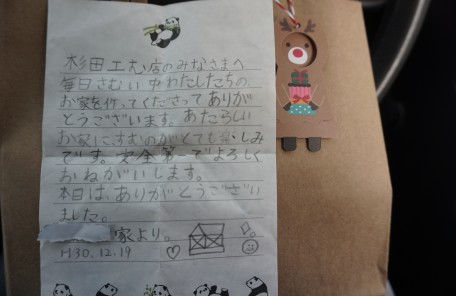 杉田工務店のみなさまへ
毎日さむい中わたしたちの
お家を作ってくださってありが
とうございます。あたらしい
お家にすむのがとても楽しみ
です。安全第一でよろしく
おねがいします。
本日は、ありがとうござい
ました。
家より。
H30.12.19